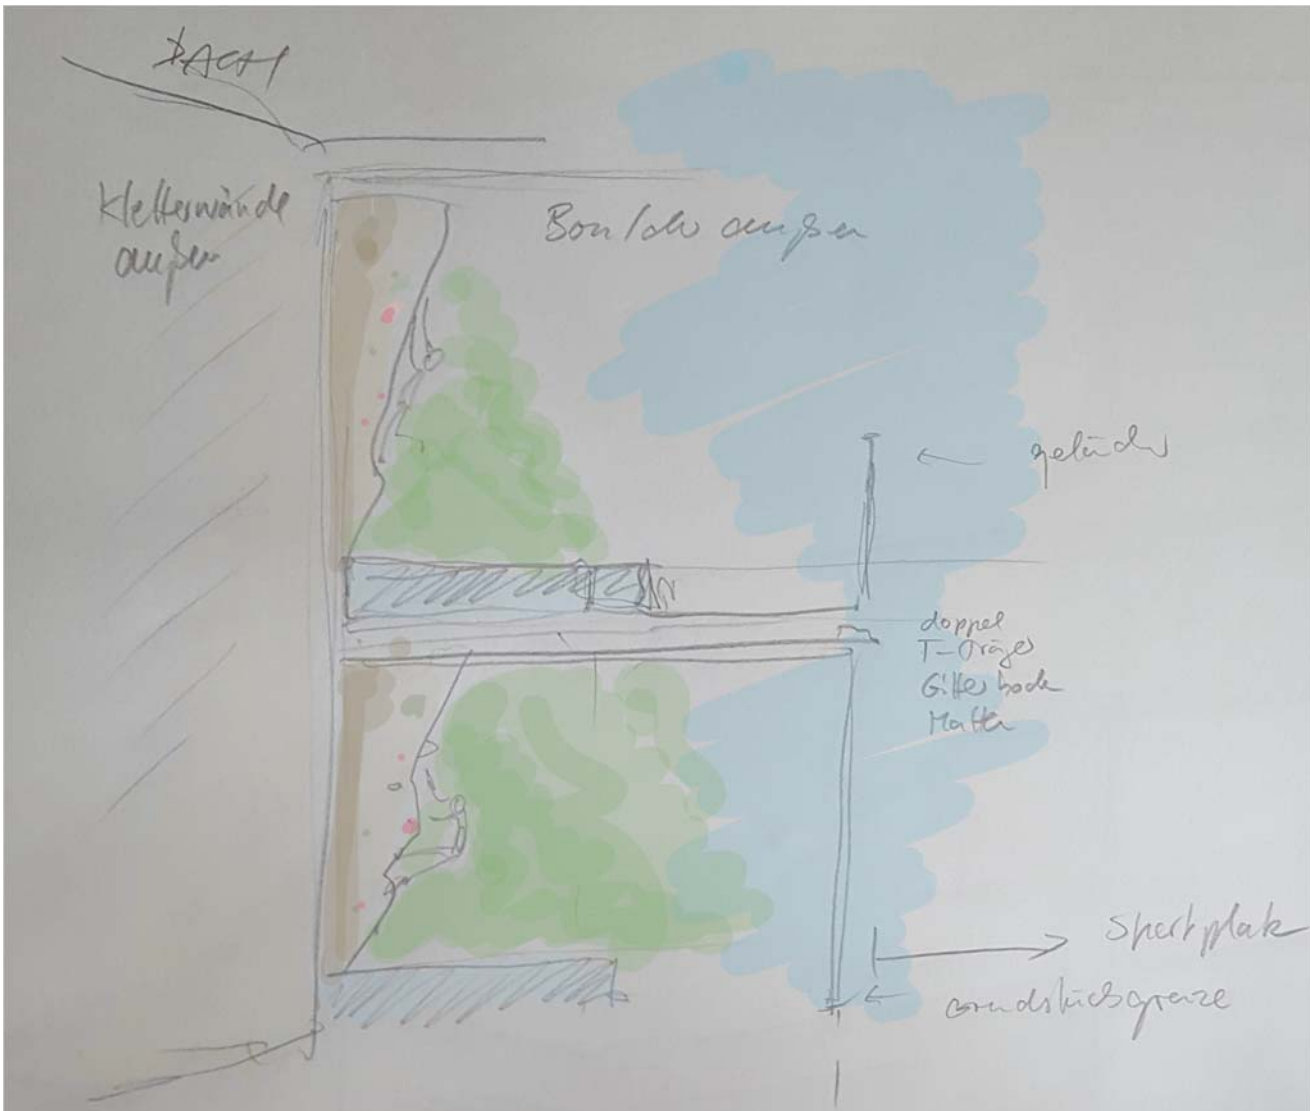 DACH
Kletterwände
außen
Boulder außen
geländer
doppel
T-Träger
Gitterbode
Matten
Sportplatz
Grundstücksgrenze